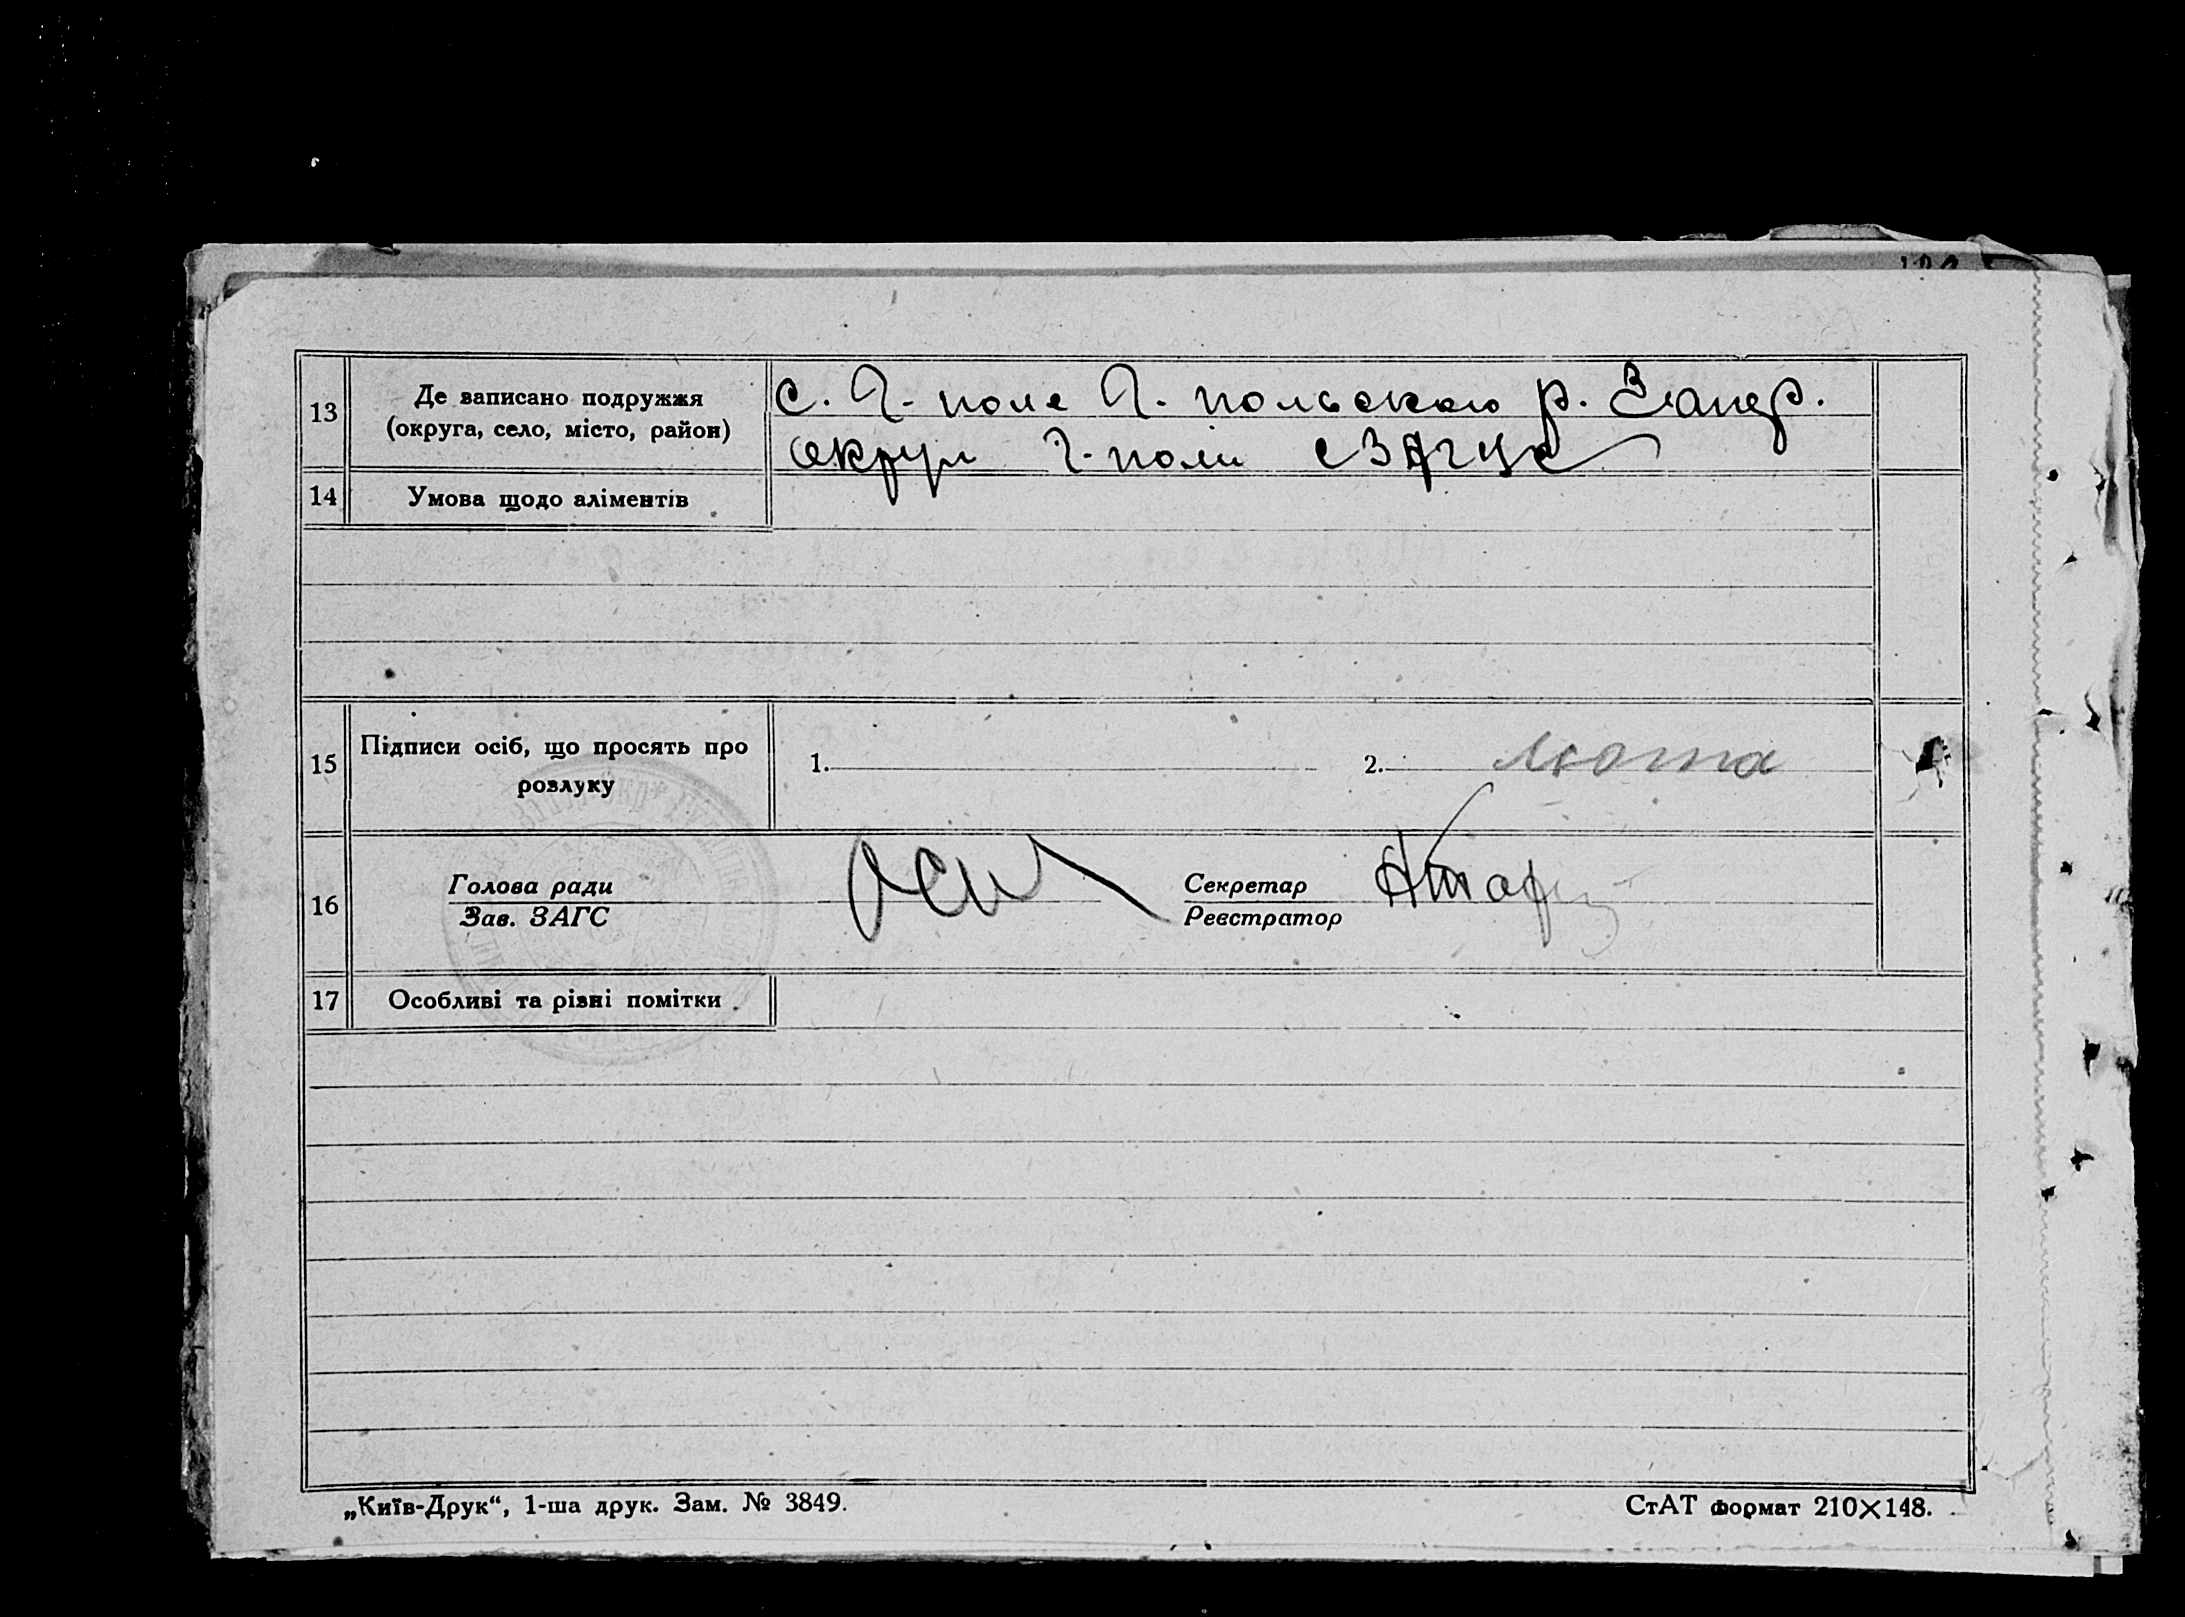 13 Де записано подружжя (округа, село, місто, район)
с. Г-поле Г. польского р. Запор.
округи Г-полє
14 Умова щодо аліментів
15 Підписи осіб, що просять про розлуку
1. 2.
16 Голова ради
Зав. ЗАГС
Секретар
Реєстратор
17 Особливі та різні помітки
„Київ-Друк“, 1-ша друк. Зам. № 3849.
СтАТ формат 210×148.